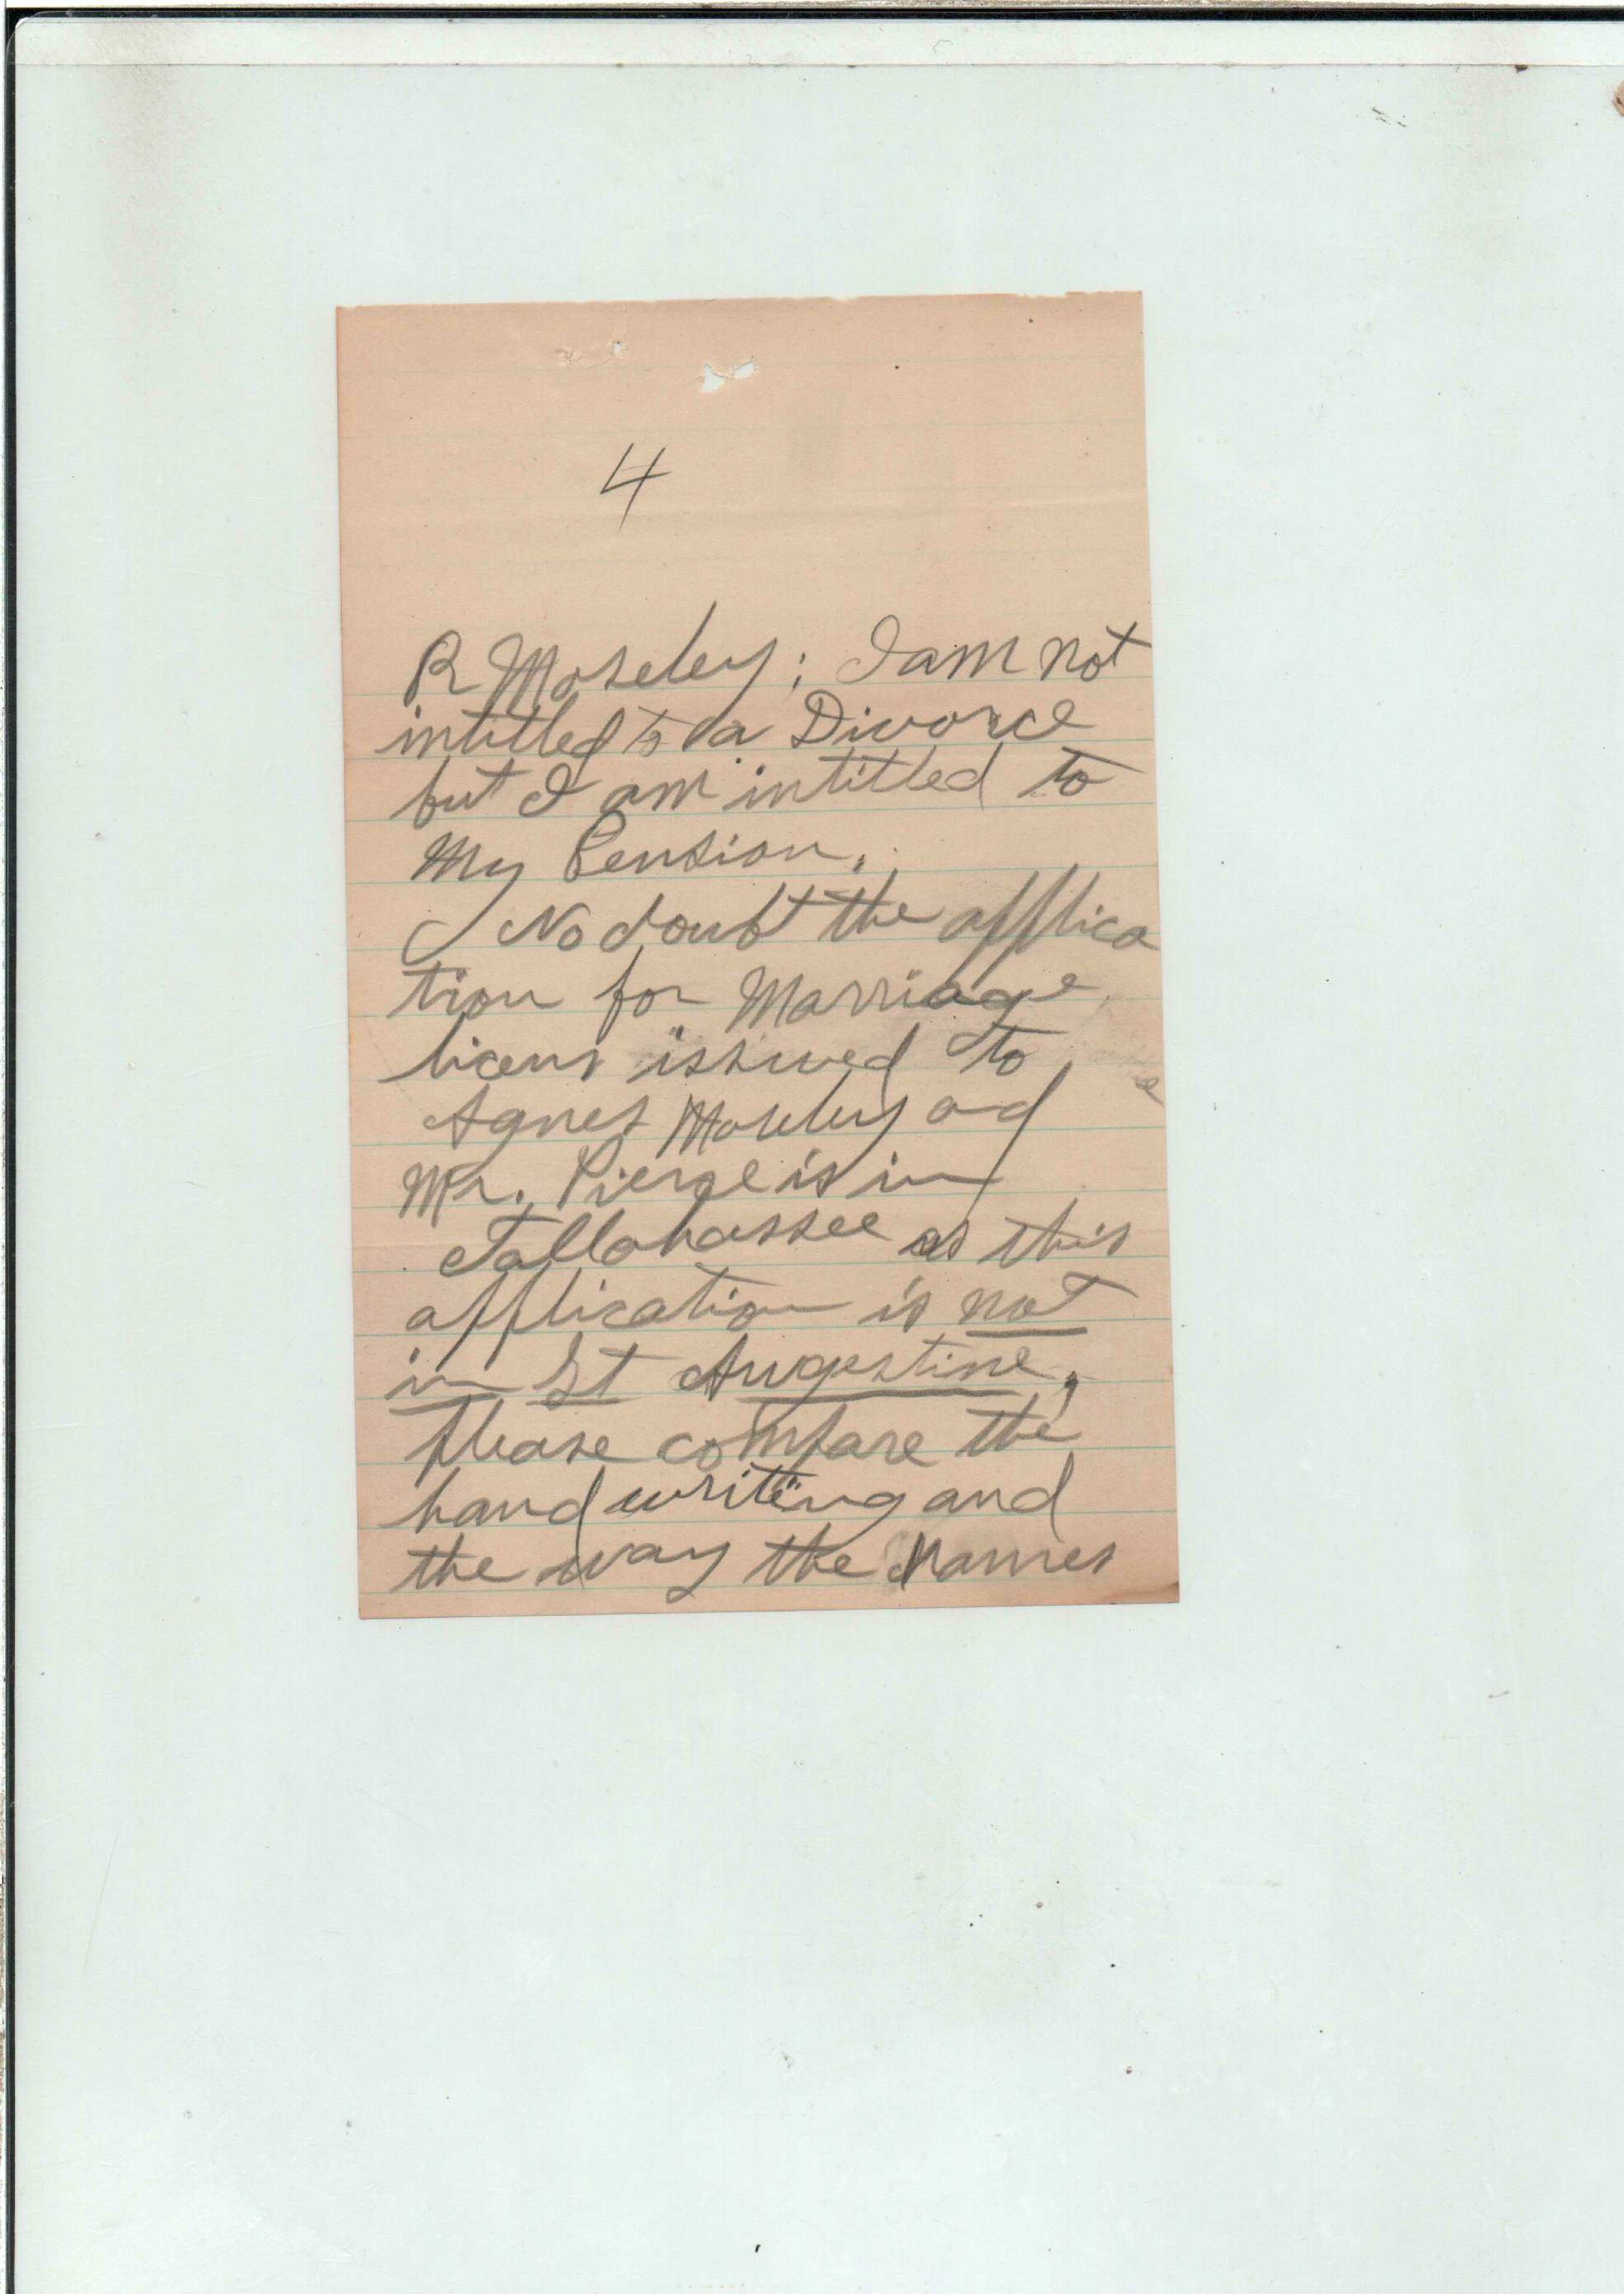 4
R Moseley; I am not
intitled to a Divorce
but I am intitled to
My Pension.
No doubt the applica
tion for Marriage
licens issued to
Agnes Moseley and
Mr. Pierce is in
Tallahassee as this
application is not
in St Augestine,
please compare the
hand writing and
the way the Names